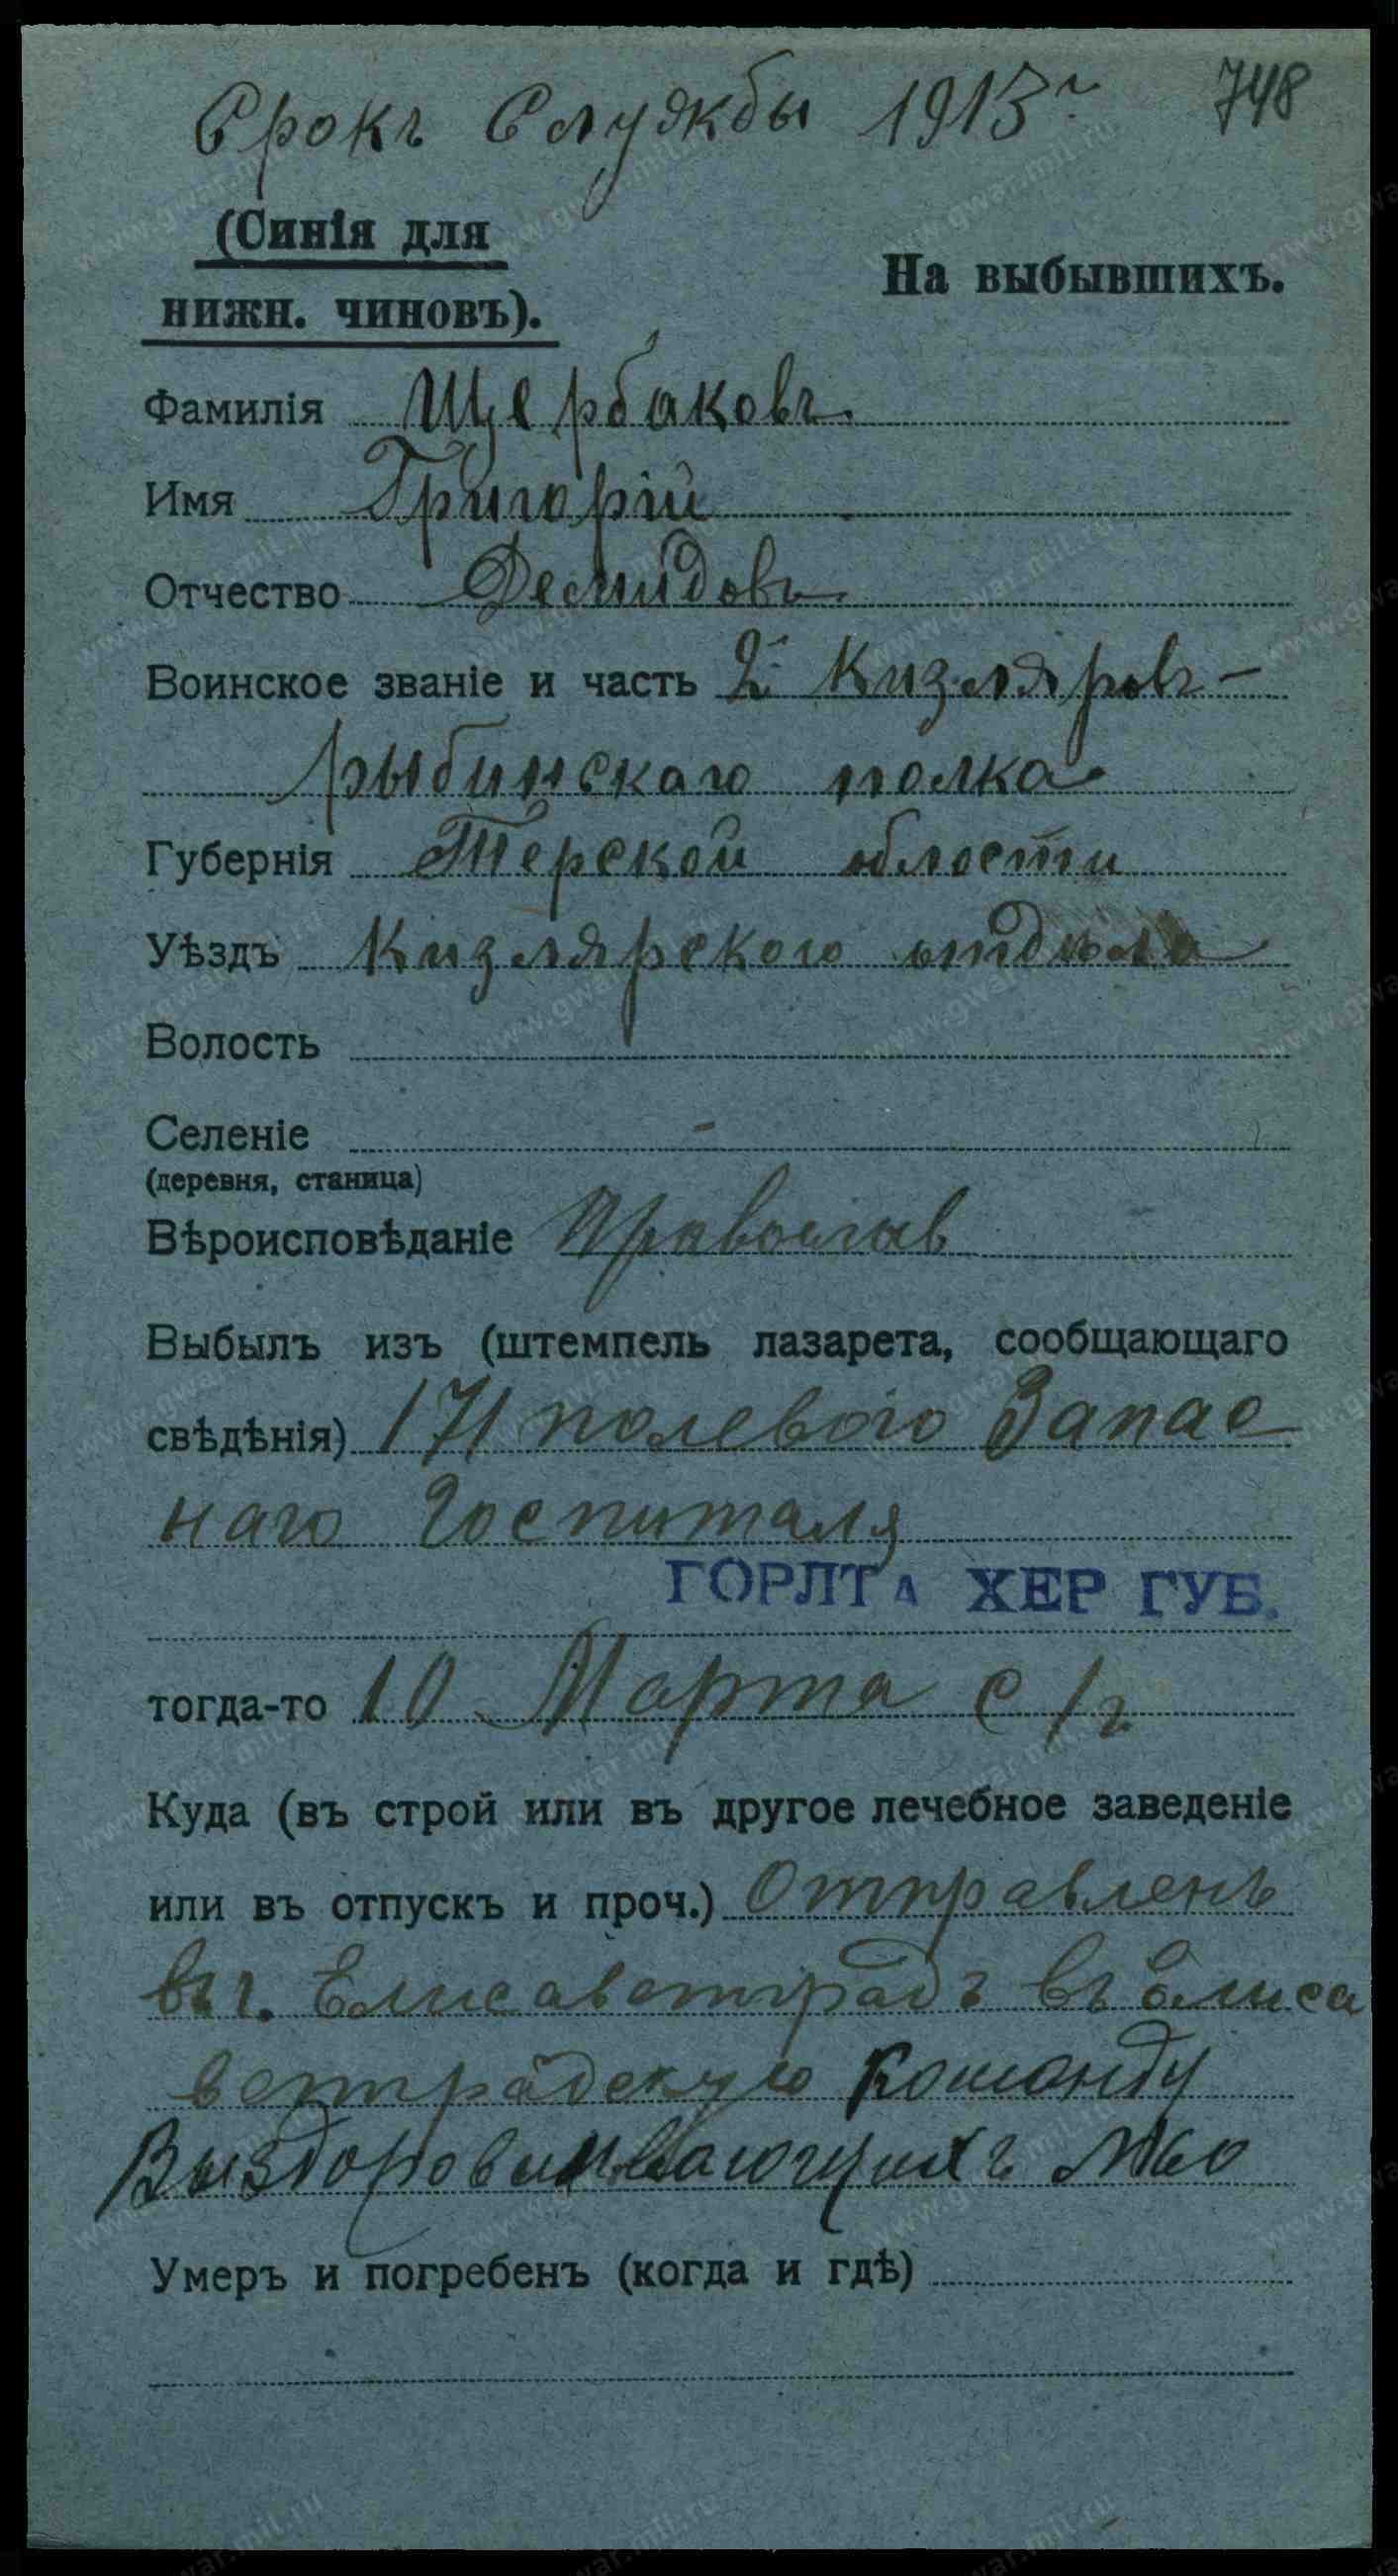 Срокъ Службы 1913 г 748
(Синія для
нижн. чиновъ).
На выбывшихъ.
Фамилія Щербаковъ.
Имя Григорій
Отчество Демидовъ
Воинское званіе и часть 2й Кизляровъ-
рыбинскаго полка
Губернія Терской области
Уѣздъ Кизлярского отдѣла
Волость
Селеніе
(деревня, станица)
Вѣроисповѣданіе Православ
Выбылъ изъ (штемпель лазарета, сообщающаго
свѣдѣнія) 171 полевого Запас
наго Госпиталя
ГОРЛТА ХЕР ГУБ.
тогда-то 10 Марта с/г.
Куда (въ строй или въ другое лечебное заведеніе
или въ отпускъ и проч.) Отправленъ
въ г. Елисаветградъ въ Елиса
ветградскую команду
Выздоравливающихъ №
Умеръ и погребенъ (когда и гдѣ)
www.gwar.mil.ru